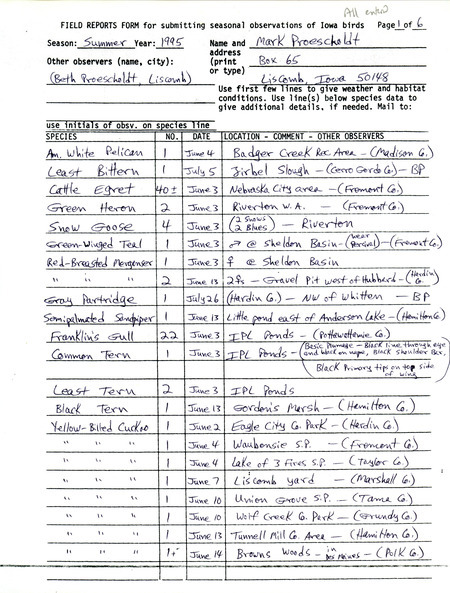 All entered
FIELD REPORTS FORM for submitting seasonal observations of Iowa birds Page 1 of 6
Season: Summer Year: 1995 Name and address (print or type) Mark Proescholdt
Other observers (name, city): Box 65
(Beth Proescholdt, Liscomb) Liscomb, Iowa 50148
Use first few lines to give weather and habitat conditions. Use line(s) below species data to give additional details, if needed. Mail to:
use initials of obsv. on species line
SPECIES NO. DATE LOCATION - COMMENT - OTHER OBSERVERS
Am. White Pelican 1 June 4 Badger Creek Rec. Area - (Madison Co.)
Least Bittern 1 July 5 Zirbel Slough - (Cerro Gordo Co.) - BP
Cattle Egret 40± June 3 Nebraska City area - (Fremont Co.)
Green Heron 2 June 3 Riverton W.A. - (Fremont Co.)
Snow Goose 4 June 3 (2 Snows 2 Blues) - Riverton
Green-Winged Teal 1 June 3 ♂ @ Sheldon Basin - (near Percival) - (Fremont Co.)
Red-Breasted Merganser 1 June 3 ♀ @ Sheldon Basin
" " 2 June 13 2♀s - Gravel Pit west of Hubbard - (Hardin Co.)
Gray Partridge 1 July 26 (Hardin Co.) - NW of Whitten - BP
Semipalmated Sandpiper 1 June 13 Little pond east of Anderson Lake - (Hamilton Co.)
Franklin's Gull 22 June 3 IPL Ponds - (Pottawattamie Co.)
Common Tern 1 June 3 IPL Ponds - (Basic Plumage - Black line through eye and black on nape, Black Shoulder Bar, Black Primary tips on top side of wing)
Least Tern 2 June 3 IPL Ponds
Black Tern 1 June 13 Gordon's Marsh - (Hamilton Co.)
Yellow-Billed Cuckoo 1 June 2 Eagle City Co. Park - (Hardin Co.)
" " 1 June 4 Waubonsie S.P. - (Fremont Co.)
" " 1 June 4 Lake of 3 Fires S.P. - (Taylor Co.)
" " 1 June 7 Liscomb yard - (Marshall Co.)
" " 1 June 10 Union Grove S.P. - (Tama Co.)
" " 1 June 10 Wolf Creek Co. Park - (Grundy Co.)
" " 1 June 13 Tunnell Mill Co. Area - (Hamilton Co.)
" " 1+ June 14 Browns Woods - in Des Moines - (Polk Co.)